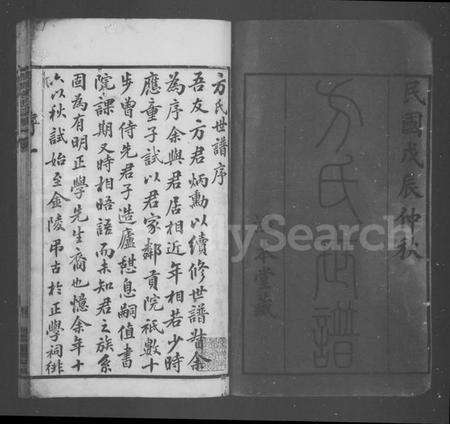 民國戊辰仲秋
方氏世譜
本堂藏
FamilySearch
方氏世譜序
吾友方君炳勳以續修世譜
為序余與君居相近年相若少時
應童子試以君家鄰貢院祇數十
步曽侍先君子造廬憇息嗣值書
院課期又時相晤語而未知君之族系
固為有明正學先生裔也憶余年十
以秋試始至金陵弔古於正學祠徘
序
一